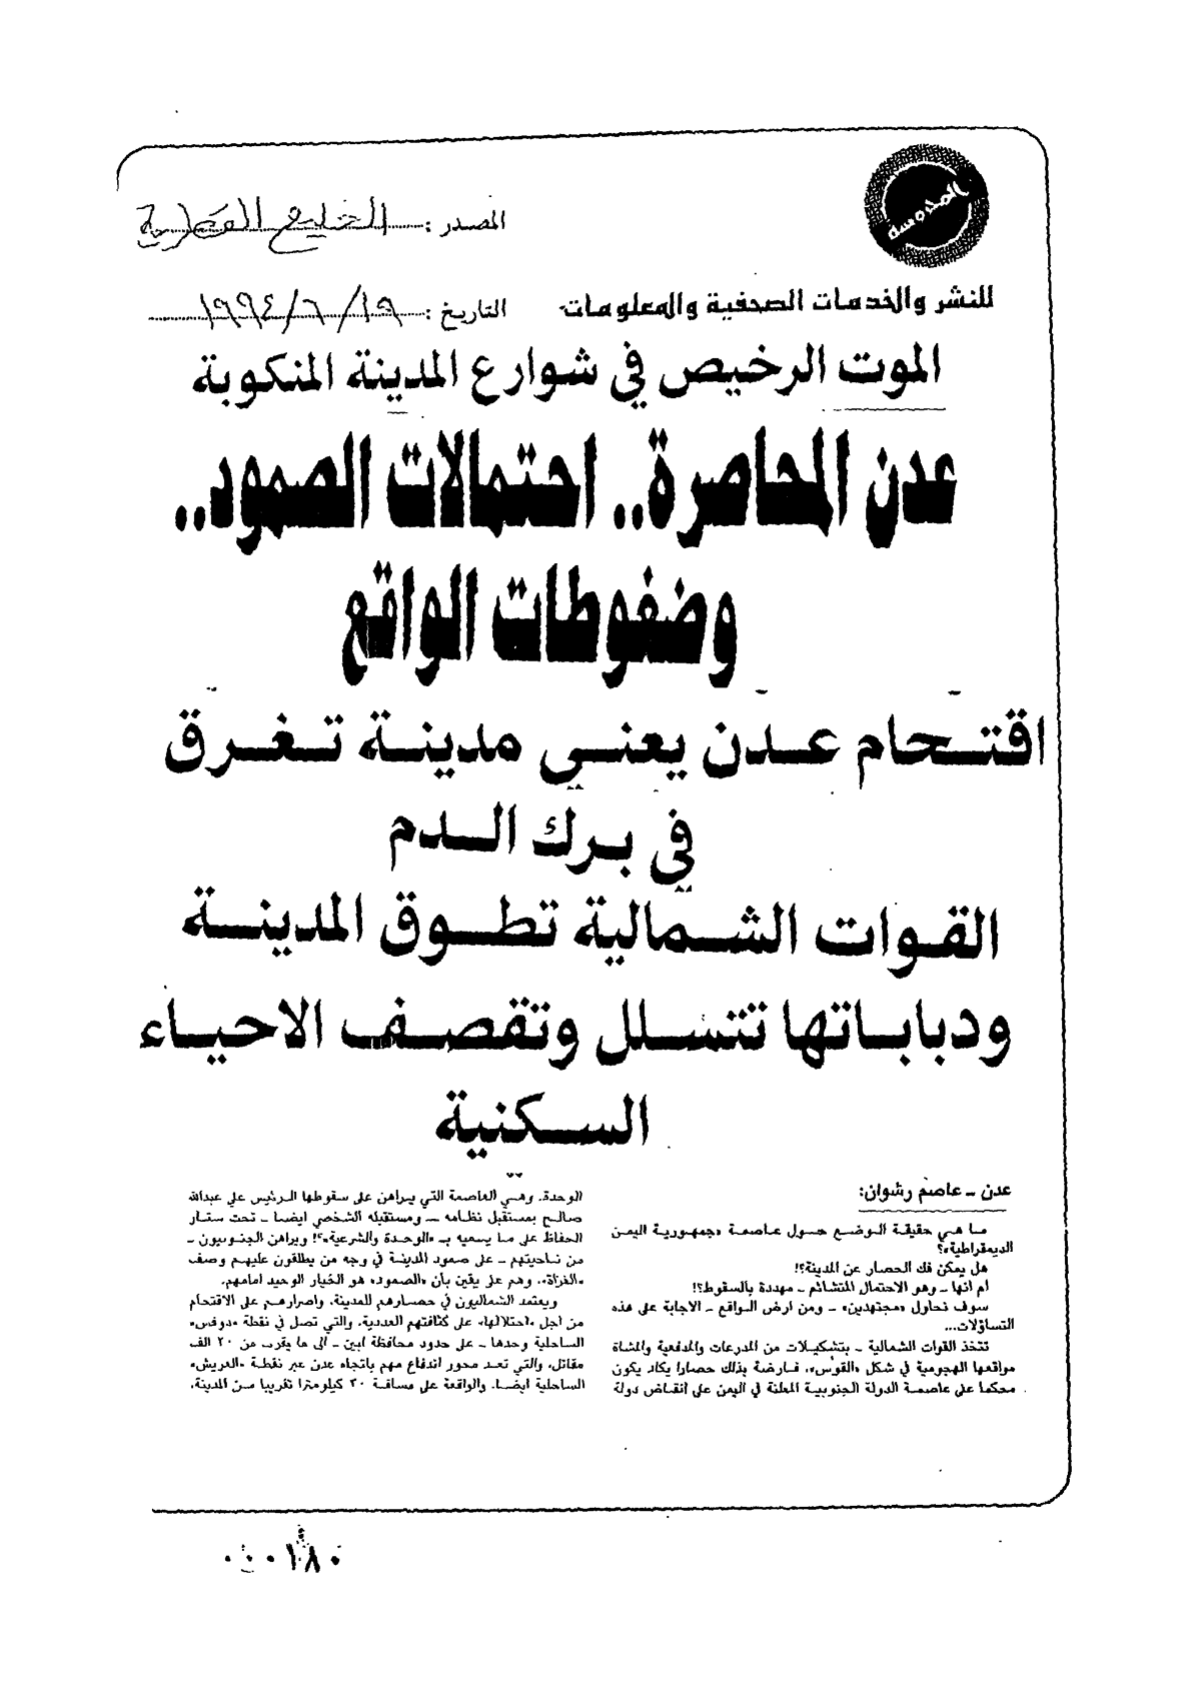 المدوسة
المصدر : الخليج القطرية
للنشر والخدمات الصحفية والمعلومات
التاريخ : ١٩/٦/١٩٩٤
الموت الرخيص في شوارع المدينة المنكوبة
عدن المحاصرة.. احتمالات الصمود..
وضغوطات الواقع
اقتحام عدن يعني مدينة تغرق
في برك الدم
القوات الشمالية تطوق المدينة
ودباباتها تتسلل وتقصف الاحياء
السكنية
عدن - عاصم رشوان:
ما هي حقيقة الوضع حول عاصمة «جمهورية اليمن
الديمقراطية»؟
هل يمكن فك الحصار عن المدينة؟!
ام انها - وهو الاحتمال المتشائم - مهددة بالسقوط؟!
سوف نحاول «مجتهدين» - ومن ارض الواقع - الاجابة على هذه
التساؤلات...
تتخذ القوات الشمالية - بتشكيلات من المدرعات والمدفعية والمشاة
مواقعها الهجومية في شكل «القوس»، فارضة بذلك حصارا يكاد يكون
محكما على عاصمة الدولة الجنوبية المعلنة في اليمن على انقاض دولة
الوحدة. وهي العاصمة التي يراهن على سقوطها الرئيس علي عبدالله
صالح بمستقبل نظامه - ومستقبله الشخصي ايضا - تحت ستار
الحفاظ على ما يسميه بـ «الوحدة والشرعية»؟! ويراهن الجنوبيون -
من ناحيتهم - على صمود المدينة في وجه من يطلقون عليهم وصف
«الغزاة»، وهم على يقين بأن «الصمود» هو الخيار الوحيد امامهم.
ويعتمد الشماليون في حصارهم للمدينة، واصرارهم على الاقتحام
من أجل «احتلالها» على كثافتهم العددية، والتي تصل في نقطة «دوفس»
الساحلية وحدها - على حدود محافظة ابين - الى ما يقرب من ٢٠ الف
مقاتل، والتي تعد محور اندفاع مهم باتجاه عدن عبر نقطة «العريش»
الساحلية ايضا، والواقعة على مسافة ٢٠ كيلومترا تقريبا من المدينة،